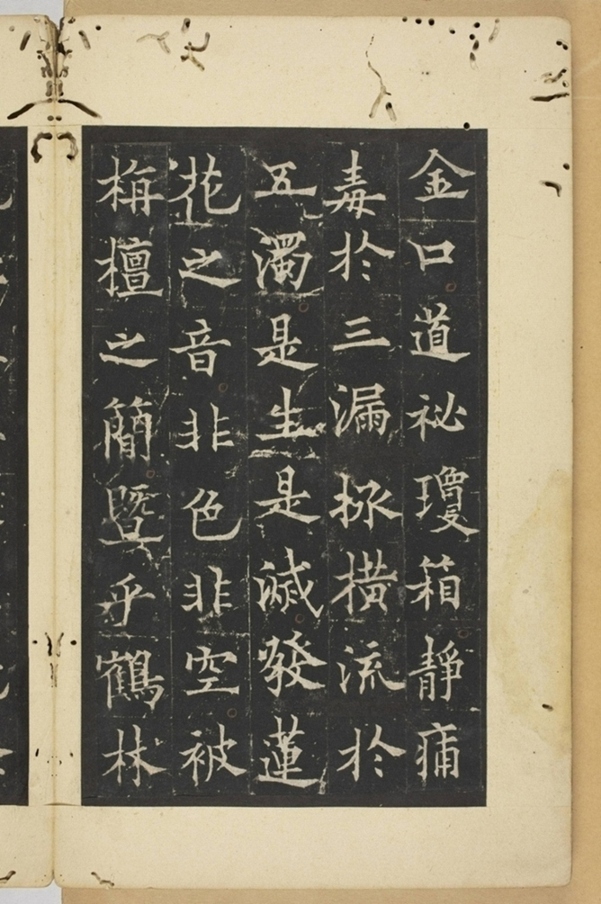 金口道祕瓊箱靜痡
毒於三漏拯橫流於
五濁是生是滅發蓮
花之音非色非空被
栴檀之簡曁乎鶴林